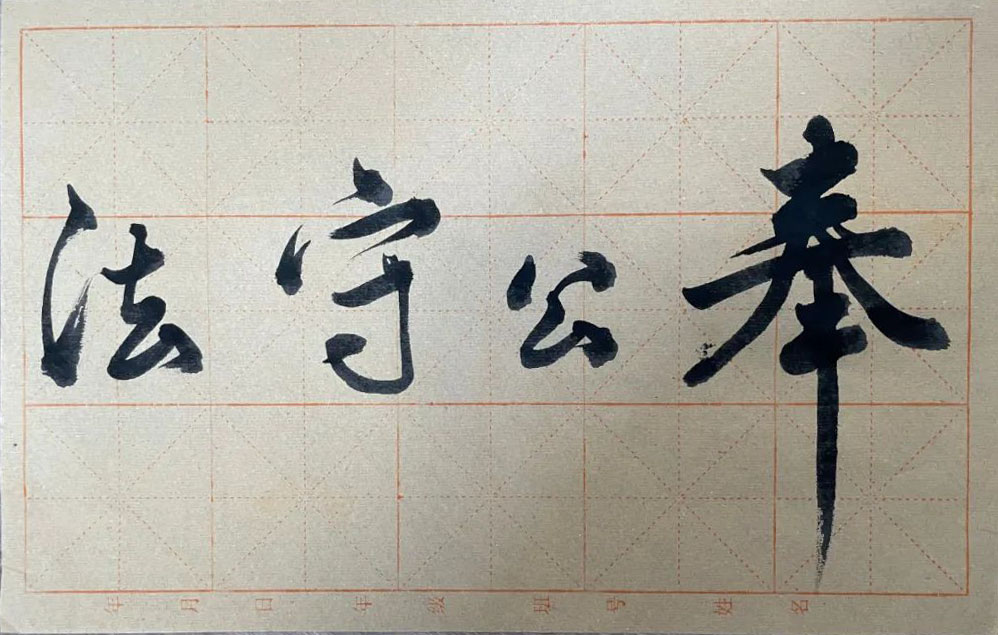 奉公守法
姓名 班号 年级 年月日